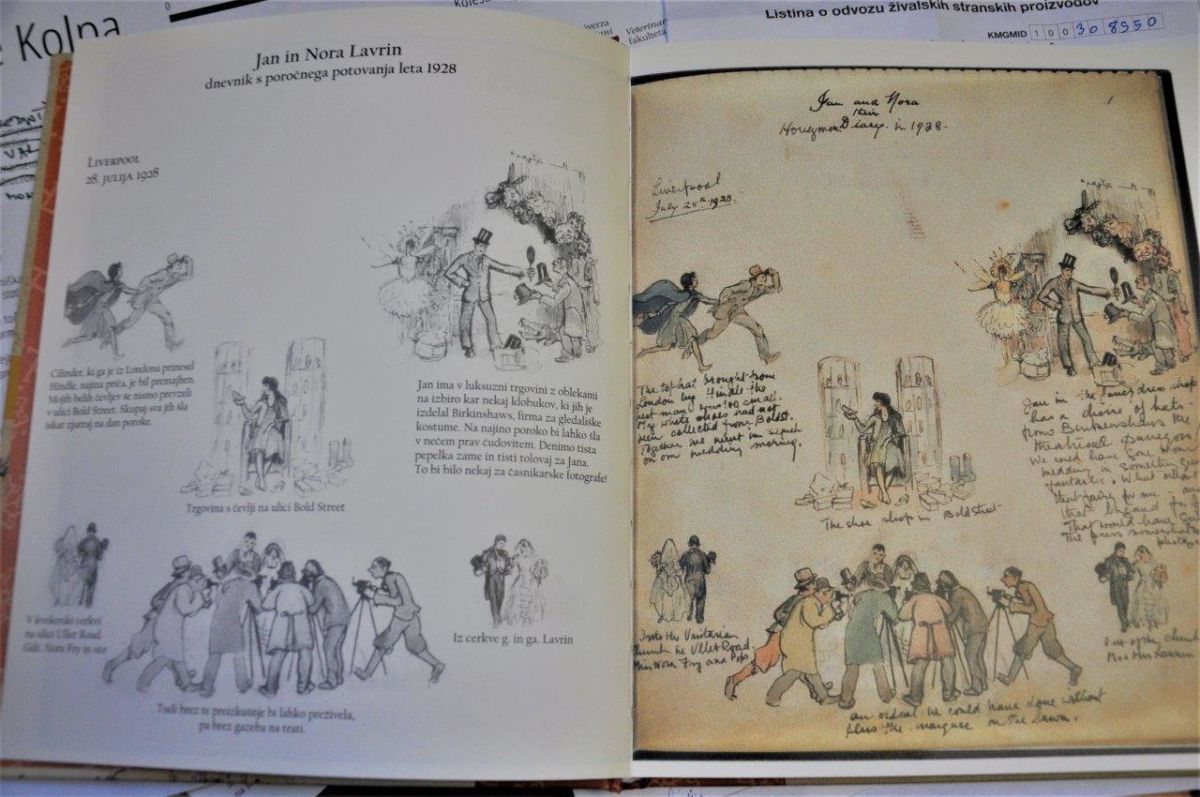 Kolpa
Veterinar
fakulteta
Listina o odvozu živalskih stranskih proizvodov
KMGMID 1 0 0 3 0 8 5 5 0
Jan in Nora Lavrin
dnevnik s poročnega potovanja leta 1928
Liverpool
28. julija 1928
Cilinder, ki ga je iz Londona prinesel
Hindle, najina priča, je bil premajhen.
Mojih belih čevljev še nismo prevzeli
v ulici Bold Street. Skupaj sva jih šla
iskat zjutraj na dan poroke.
Jan ima v luksuzni trgovini z oblekami
na izbiro kar nekaj klobukov, ki jih je
izdelal Birkinshaws, firma za gledališke
kostume. Na najino poroko bi lahko šla
v nečem prav čudovitem. Denimo tista
pepelka zame in tisti tolovaj za Jana.
To bi bilo nekaj za časnikarske fotografe!
Trgovina s čevlji na ulici Bold Street
na ulici Ullet Road.
Gdč. Nora Fry in oče
Iz cerkve g. in ga. Lavrin
Tudi brez te preizkušnje bi lahko preživela,
pa brez gazeba na trati.
Jan and Nora
their
Honeymoon Diary in 1928.
1
Liverpool
July 28th 1928.
The top hat brought from
London by Hindle the
best man, was too small.
My white shoes had not
been collected from Bold St.
Together we went in search
on our wedding morning.
Jan in the fancy dress shop
has a choice of hats
from Birkenshaws the
theatrical
We could have gone
wedding in something
fantastic. What
that fairy for me - and
that brigand for
That would have
the press somewhat
The shoe shop in Bold Street
Into the Unitarian
Church in Ullet Road.
Miss Nora Fry and Pops
Out of the Church
Mr & Mrs Lavrin
an ordeal we could have done without
plus the marquee on the lawn.